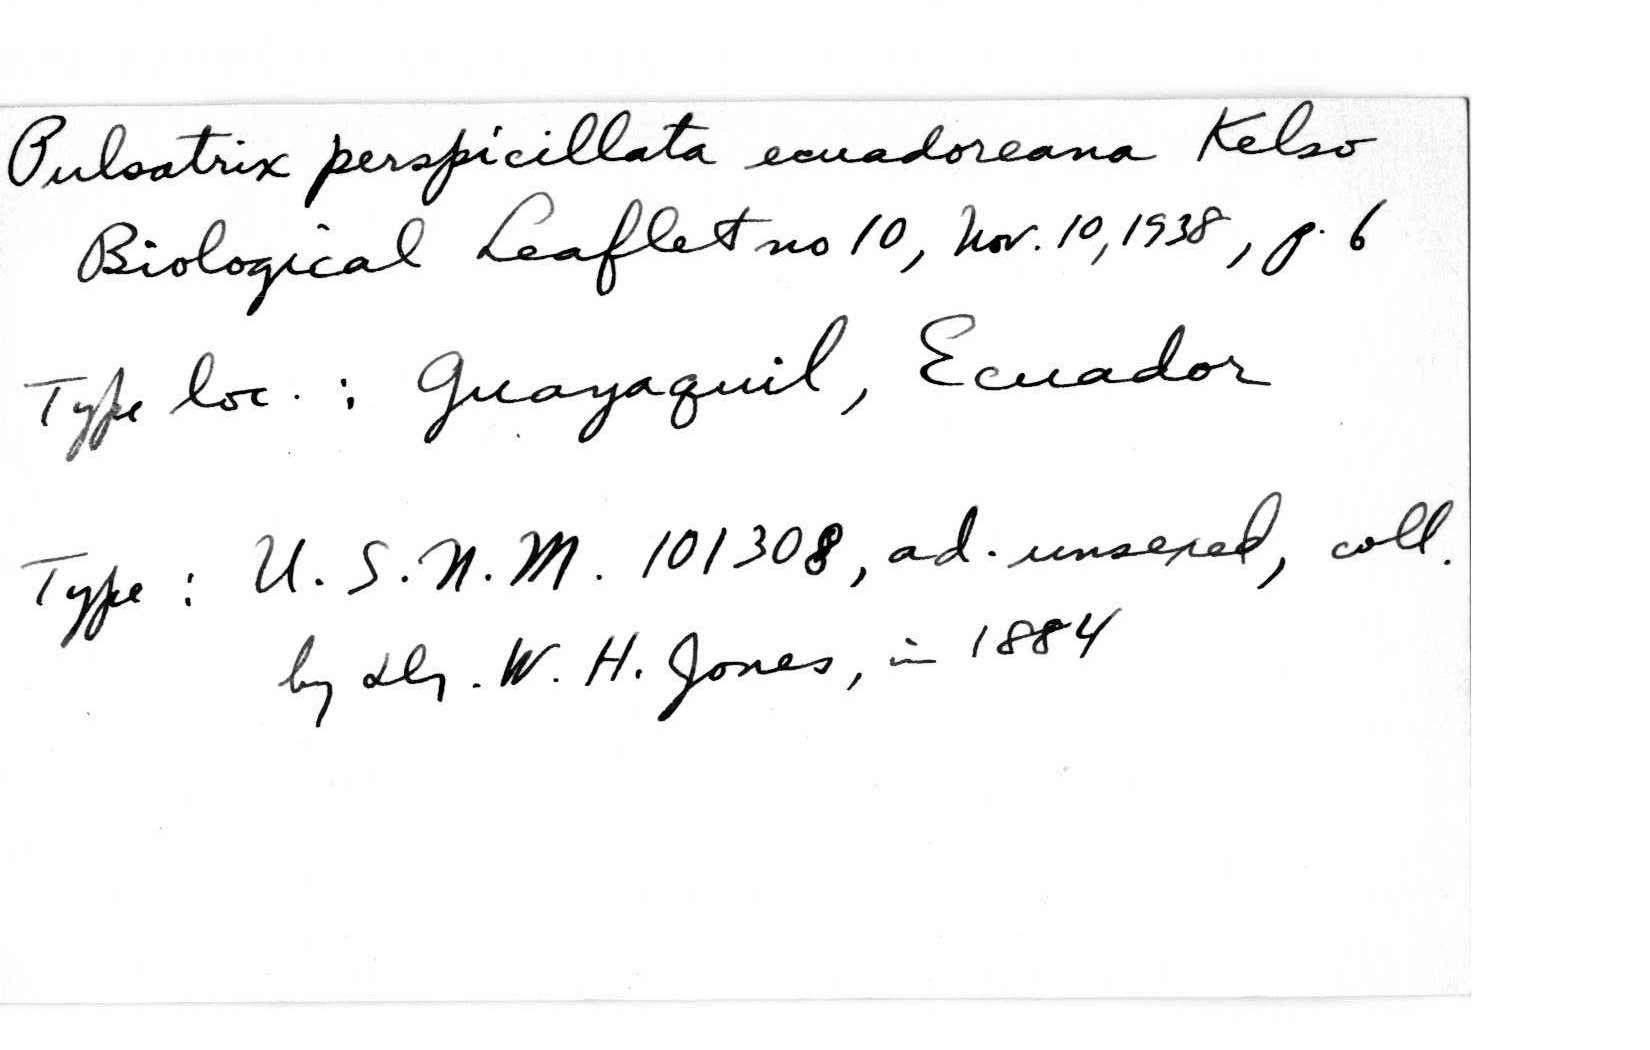 Pulsatrix perspicillata ecuadoreana Kelso
Biological Leaflet no 10, Nov. 10, 1938, p. 6
Type loc. : Guayaquil, Ecuador
Type : U. S. N. M. 101308, ad. unsexed, coll.
by Dr. W. H. Jones, in 1884